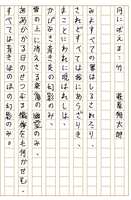 月に吠える：竹
萩原朔太郎
みよすべての罪はしるされたり、
されどすべては我にあらざりき、
まことにわれに現はれしは、
かげなき青き炎の幻影のみ、
雪の上に消えさる哀傷の幽霊のみ、
ああかかる日のせつなる懺悔をも何かせむ、
すべては青きほのほの幻影のみ。